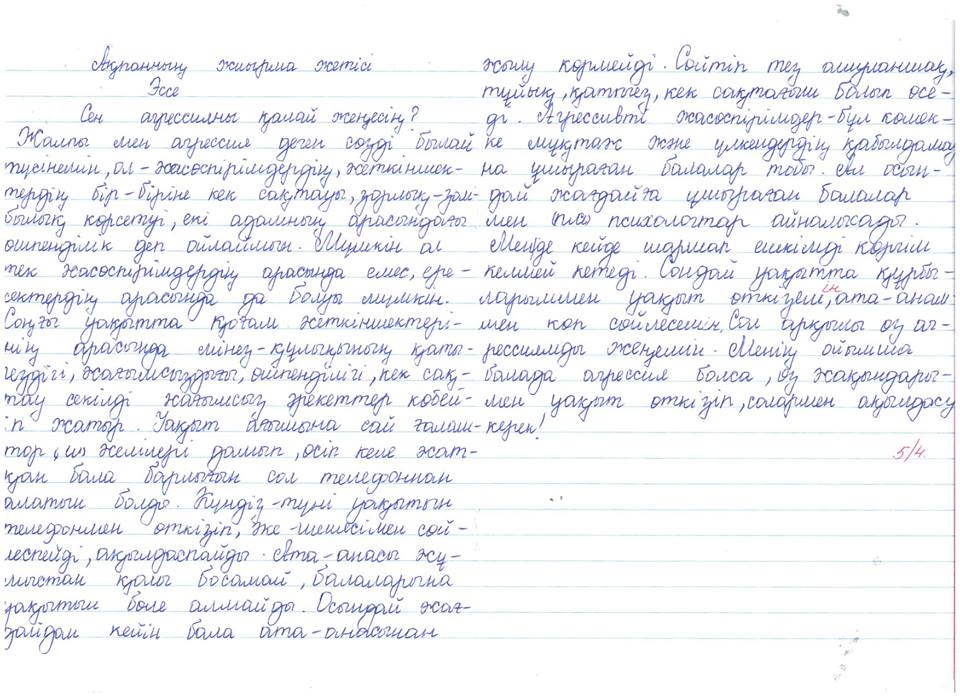 Ақпанның жиырма жетісі
Эссе
Сен агрессияны қалай жеңесің?
Жалпы мен агрессия деген сөзді былай
түсінемін, ол - жасөспірімдердің, жеткіншек-
тердің бір-біріне кек сақтауы, зорлық-зом-
былық көрсетуі, екі адамның арасындағы
өшпенділік деп ойлаймын. Мүмкін ол
тек жасөспірімдердің арасында емес, ере-
сектердің арасында да болуы мүмкін.
Соңғы уақытта қоғам жеткіншектері-
нің арасында мінез-құлықының қаты-
гездігі, жағымсыздығы, өшпенділігі, кек сақ-
тау секілді жағымсыз әрекеттер көбей-
іп жатыр. Уақыт ағымына сай ғалам-
тор желілері дамып, өсіп келе жат-
қан бала барлығын сол телефоннан
алатын болды. Күндіз-түні уақытын
телефонмен өткізіп, әке-шешесімен сөй-
леспейді, ақылдаспайды. Ата-анасы жұ-
мыстан қолы босамай, балаларына
уақытын бөле алмайды. Осындай жағ-
дайдан кейін бала ата-анасынан
жылу көрмейді. Сөйтіп тез ашуланшақ,
тұйық, қатыгез, кек сақтағыш болып өсе-
ді. Агрессивті жасөспірімдер-бұл көмек-
ке мұқтаж және үлкендердің қабылдамау
на ұшыраған балалар тобы. Ал осын-
дай жағдайға ұшыраған балалар
мен психологтар айналысады.
Менде кейде шаршап ешкімді көргім
келмей кетеді. Сондай уақытта құрбы-
ларыммен уақыт өткізем ін, ата-анам-
мен көп сөйлесемін. Сол арқылы өз аг-
рессиямды жеңемін. Менің ойымша
балада агрессия болса, өз жақындары-
мен уақыт өткізіп, солармен ақылдасу
керек!
5/4